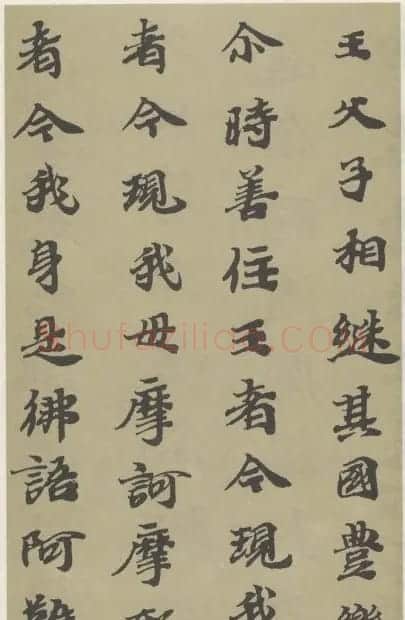 王父子相継其國豊
尒時善住王者令現我
者令現我母摩訶摩
者令我身是佛語阿